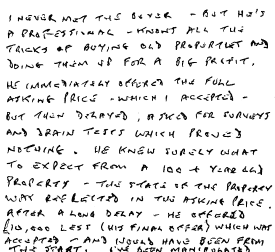 I NEVER MET THE BUYER - BUT HE'S
A PROFESSIONAL - KNOWS ALL THE
TRICKS OF BUYING OLD PROPERTIES AND
DOING THEM UP FOR A BIG PROFIT.
HE IMMEDIATELY OFFERED THE FULL
ASKING PRICE - WHICH I ACCEPTED -
BUT THEN DELAYED, ASKED FOR SURVEYS
AND DRAIN TESTS WHICH PROVED
NOTHING. HE KNEW SURELY WHAT
TO EXPECT FROM A 100 + YEAR OLD
PROPERTY - THE STATE OF THE PROPERTY
WAS REFLECTED IN THE ASKING PRICE.
AFTER A LONG DELAY - HE OFFERED
£10,000 LESS (HIS FINAL OFFER) WHICH WAS
ACCEPTED - AND WOULD HAVE BEEN FROM
THE START. I'VE BEEN MANIPULATED